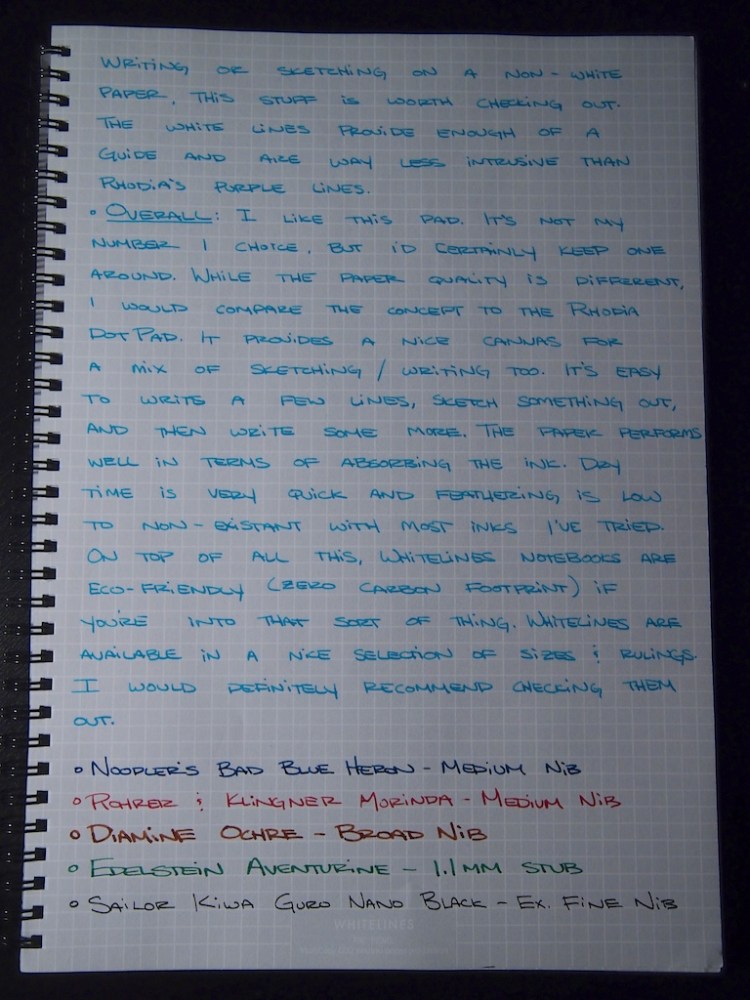 WRITING OR SKETCHING ON A NON-WHITE
PAPER, THIS STUFF IS WORTH CHECKING OUT.
THE WHITE LINES PROVIDE ENOUGH OF A
GUIDE AND ARE WAY LESS INTRUSIVE THAN
RHODIA'S PURPLE LINES.
• OVERALL: I LIKE THIS PAD. IT'S NOT MY
NUMBER 1 CHOICE, BUT I'D CERTAINLY KEEP ONE
AROUND. WHILE THE PAPER QUALITY IS DIFFERENT,
I WOULD COMPARE THE CONCEPT TO THE RHODIA
DOTPAD. IT PROVIDES A NICE CANVAS FOR
A MIX OF SKETCHING / WRITING TOO. IT'S EASY
TO WRITE A FEW LINES, SKETCH SOMETHING OUT,
AND THEN WRITE SOME MORE. THE PAPER PERFORMS
WELL IN TERMS OF ABSORBING THE INK. DRY
TIME IS VERY QUICK AND FEATHERING IS LOW
TO NON-EXISTANT WITH MOST INKS I'VE TRIED.
ON TOP OF ALL THIS, WHITELINES NOTEBOOKS ARE
ECO-FRIENDLY (ZERO CARBON FOOTPRINT) IF
YOU'RE INTO THAT SORT OF THING. WHITELINES ARE
AVAILABLE IN A NICE SELECTION OF SIZES & RULINGS.
I WOULD DEFINITELY RECOMMEND CHECKING THEM
OUT.
• NOODLER'S BAD BLUE HERON - MEDIUM NIB
• ROHRER & KLINGNER MORINDA - MEDIUM NIB
• DIAMINE OCHRE - BROAD NIB
• EDELSTEIN AVENTURINE - 1.1MM STUB
• SAILOR KIWA GURO NANO BLACK - EX. FINE NIB
WHITELINES